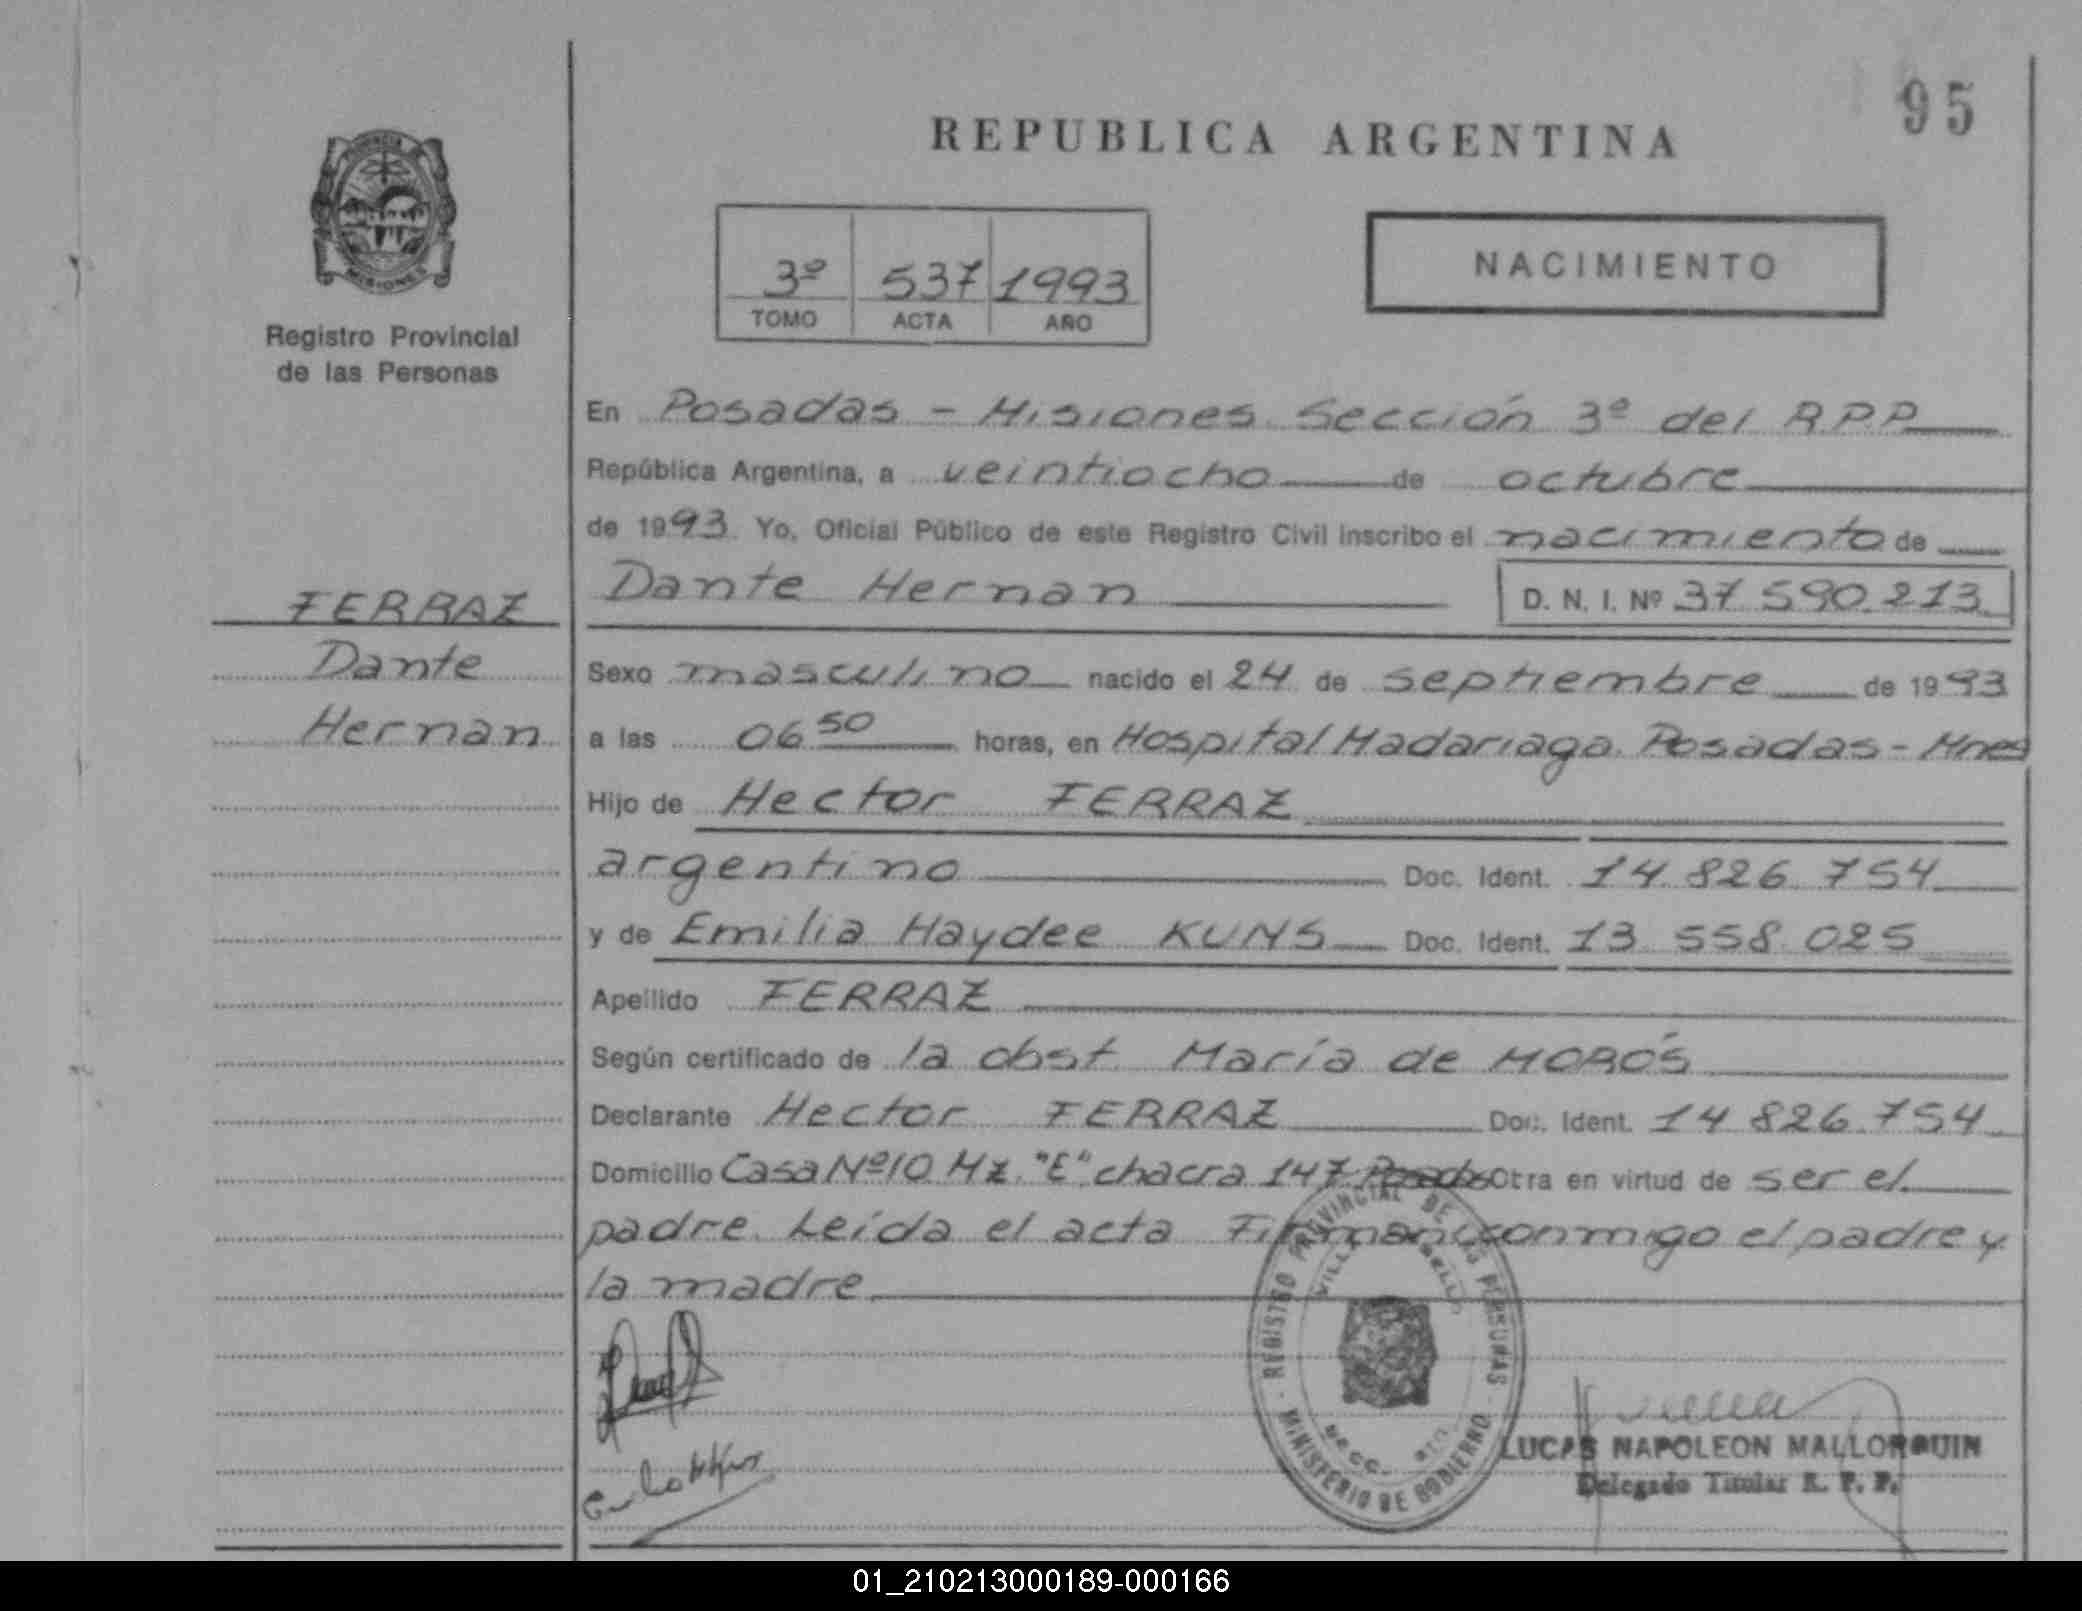 95
REPUBLICA ARGENTINA
PROVINCIA DE MISIONES
Registro Provincial
de las Personas
3º 537 1993
TOMO ACTA AÑO
NACIMIENTO
En Posadas - Misiones Sección 3º del R.P.P.
República Argentina, a veintiocho de octubre
de 1993. Yo, Oficial Público de este Registro Civil inscribo el nacimiento de
Dante Hernan D. N. I. Nº 37.590.213
FERRAZ
Dante
Hernan
Sexo masculino nacido el 24 de septiembre de 1993
a las 06 50 horas, en Hospital Madariaga Posadas - Mnes
Hijo de Hector FERRAZ
argentino Doc. Ident. 14.826.754
y de Emilia Haydee KUNS Doc. Ident. 13.558.025
Apellido FERRAZ
Según certificado de la obst. María de MOROS
Declarante Hector FERRAZ Doc. Ident. 14.826.754
Domicilio Casa Nº10 Mz. "E" chacra 147 Posadas Otra en virtud de ser el
padre. Leída el acta Firman conmigo el padre y
la madre
REGISTRO PROVINCIAL DE LAS PERSONAS
MINISTERIO DE GOBIERNO
LUCAS NAPOLEON MALLORQUIN
Delegado Titular R. P. P.
01_210213000189-000166